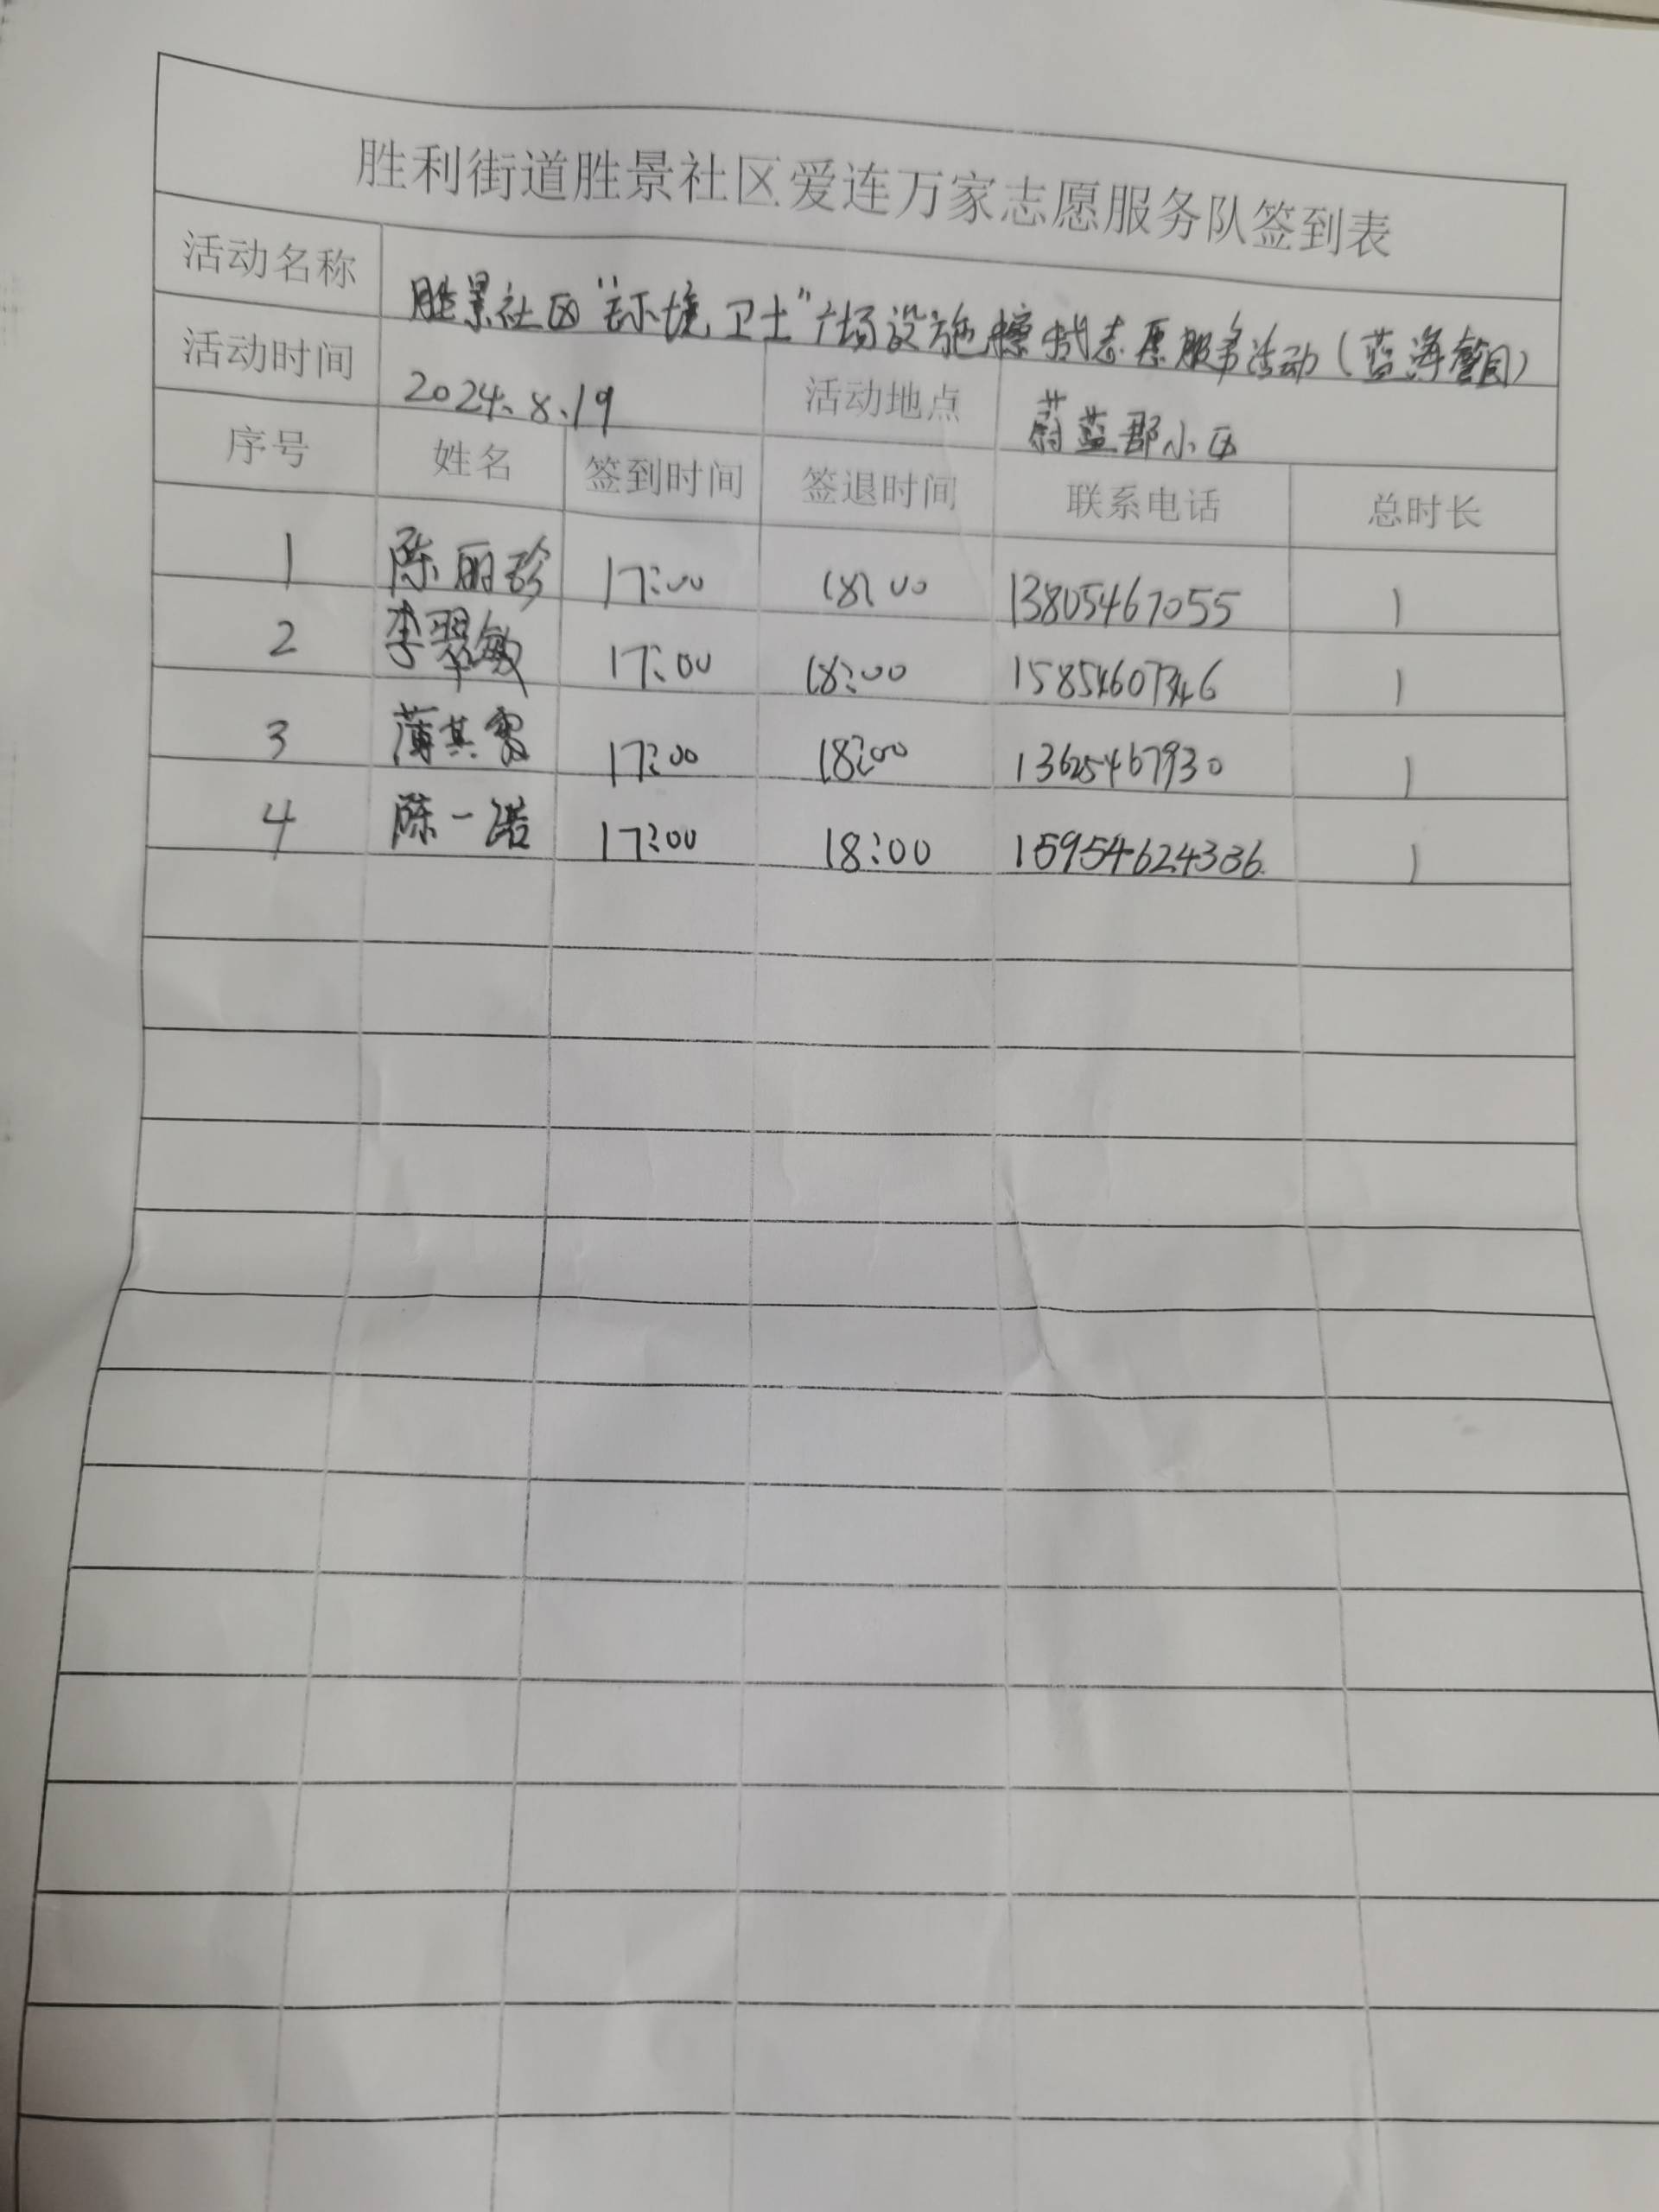 胜利街道胜景社区爱连万家志愿服务队签到表
活动名称 胜景社区“环境卫士”广场设施擦拭志愿服务活动(蓝海
活动时间 2024.8.19 活动地点 蔚蓝郡小区
序号 姓名 签到时间 签退时间 联系电话 总时长
1 陈丽珍 17:00 18:00 13805467055 1
2 李翠敏 17:00 18:00 1
3 薄其雷 17:00 18:00 13625467930 1
4 陈一诺 17:00 18:00 15954624336 1